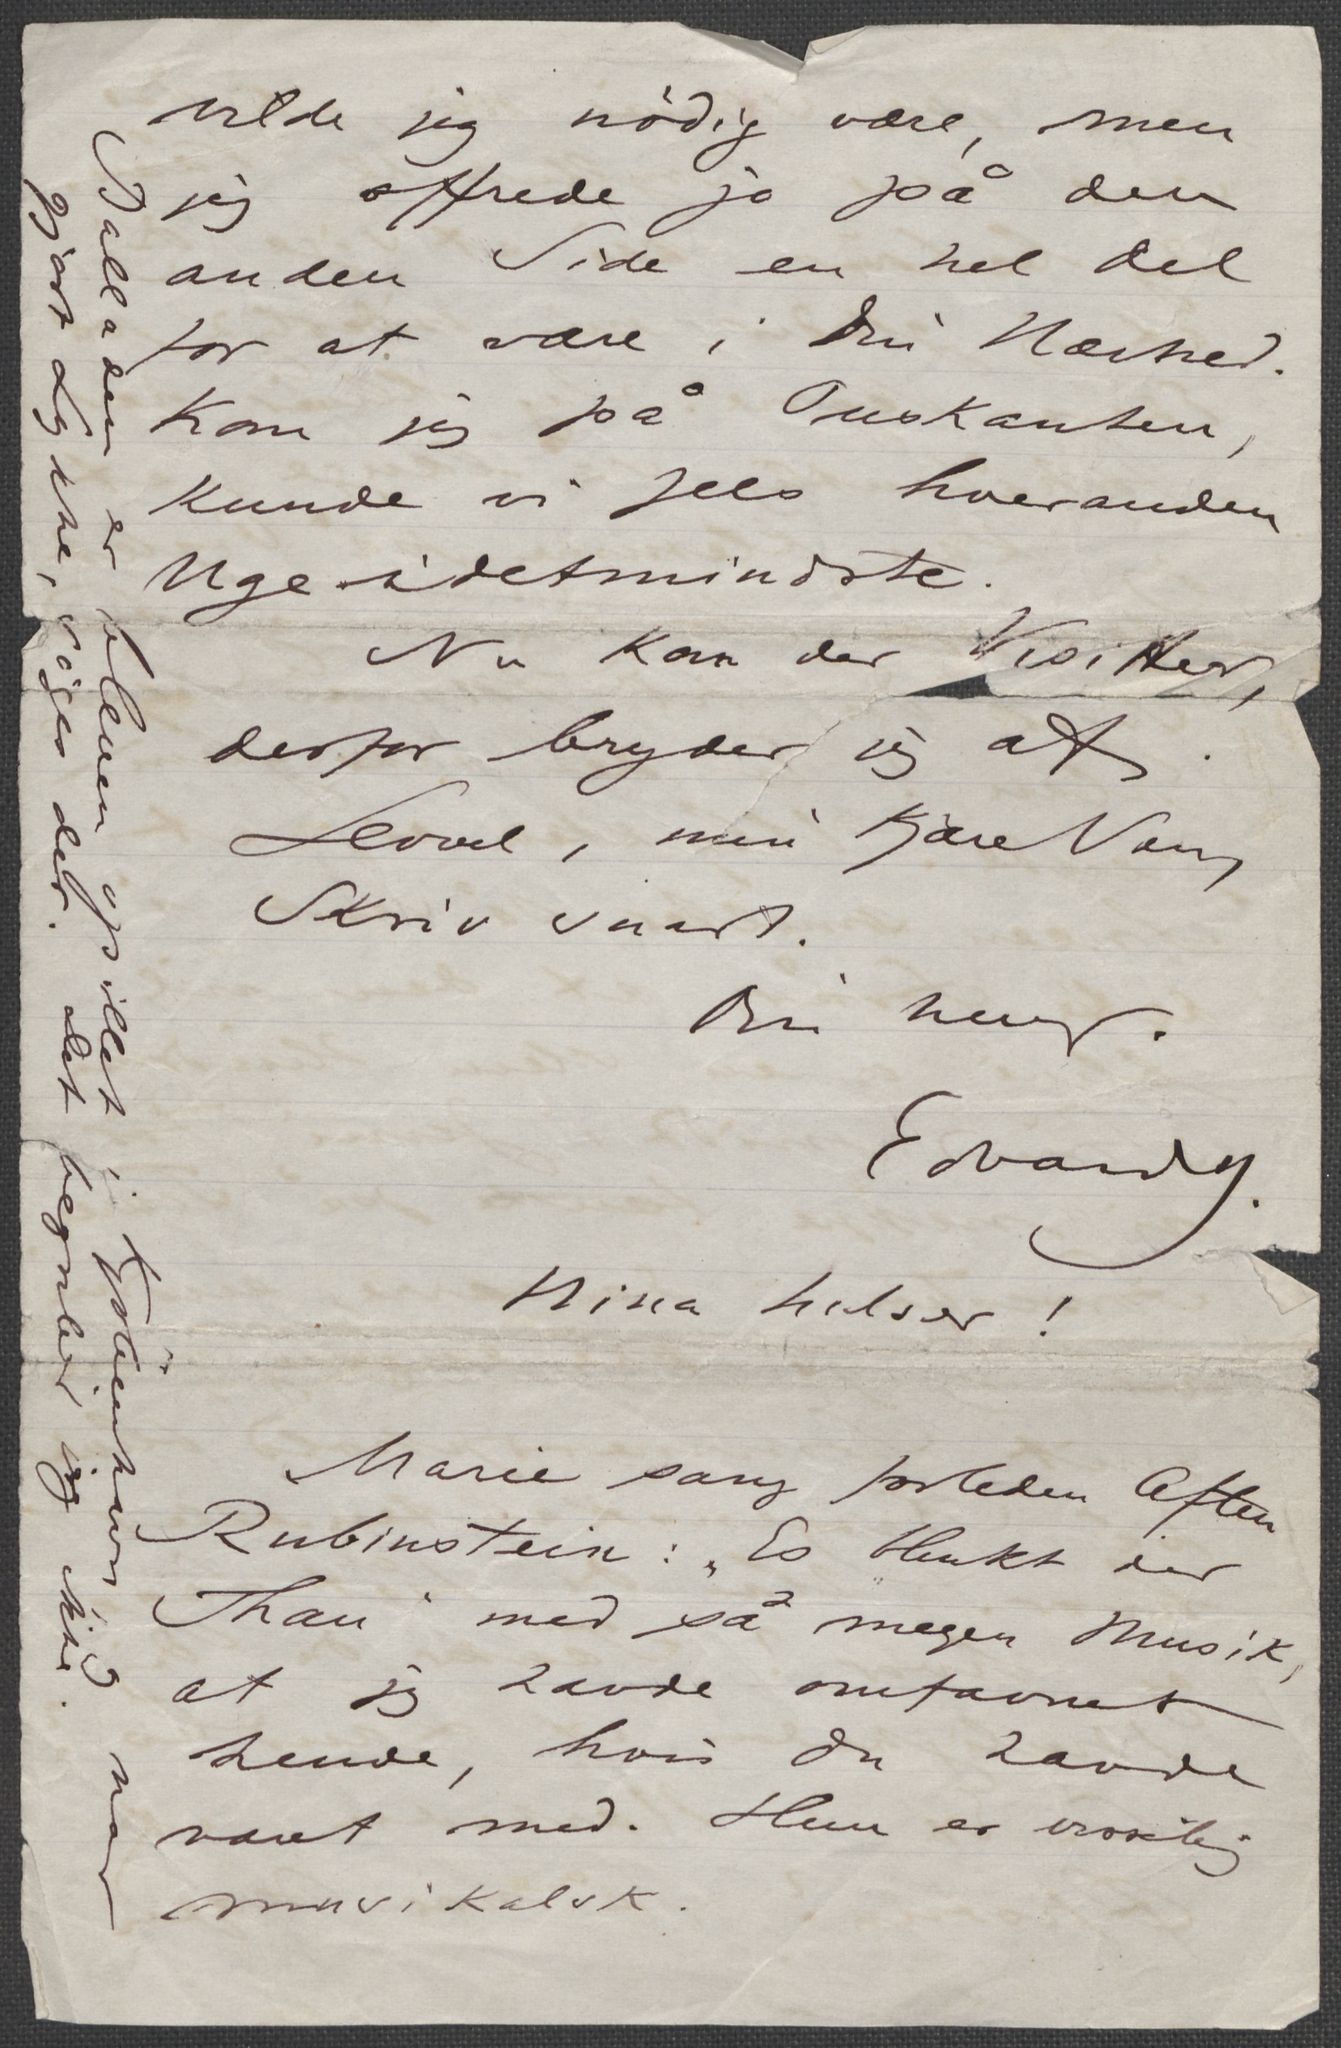 vilde jeg nödig være, men
jeg offrede jo på den
anden Side en hel del
for at være i Din Nærhed.
Kom jeg på Puskanten,
kunde vi sees hveranden
Uge idetmindste.
Nu kom der Visitter,
derfor bryder jeg af.
Levvel, min kjære Ven,
Skriv snart.
Din heng.
Edvard G.
Nina hilser!
Marie sang forleden Aften
Rubinstein: „Es blinkt der
Thau“ med så megen Musik,
at jeg havde omfavnet
hende, hvis Du havde
været med. Hun er virkelig
musikalsk.
Balladen er bleven spillet i Kjöbenhavn, har
gjort Lykke, siges der. Det begriber jeg ikke.